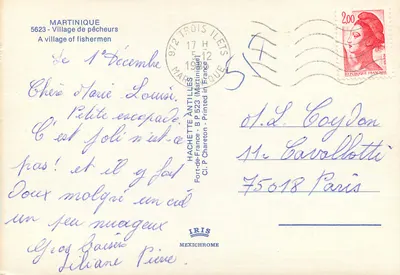 MARTINIQUE
5623 - Village de pêcheurs
A village of fishermen
Le 1er Décembre
Chère Marie Louise.
Petite escapade.
C'est joli n'est-ce
pas! et il y fait
doux malgré un ciel
un peu nuageux
Gros baisers
Liliane Pierre
HACHETTE ANTILLES
Fort-de-France - B P 623 (Martinique)
Cl. P Chareton - Printed in France
972 TROIS ILETS
17 H
5-12
MARTINIQUE
2,00
M.L. Coydon
11 Cavallotti
75018 Paris
IRIS
MEXICHROME